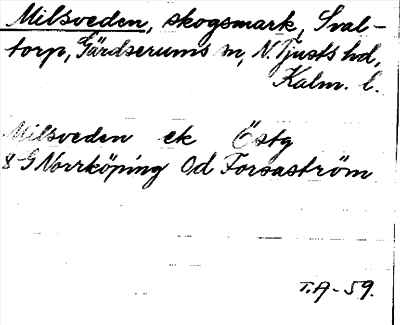 Milsveden, skogsmark, Sval-
torp, Gärdserums sn, N. Tjusts hd,
Kalm. l.
Milsveden ek Östg
8 G Norrköping Od Forsaström
T.A-59.